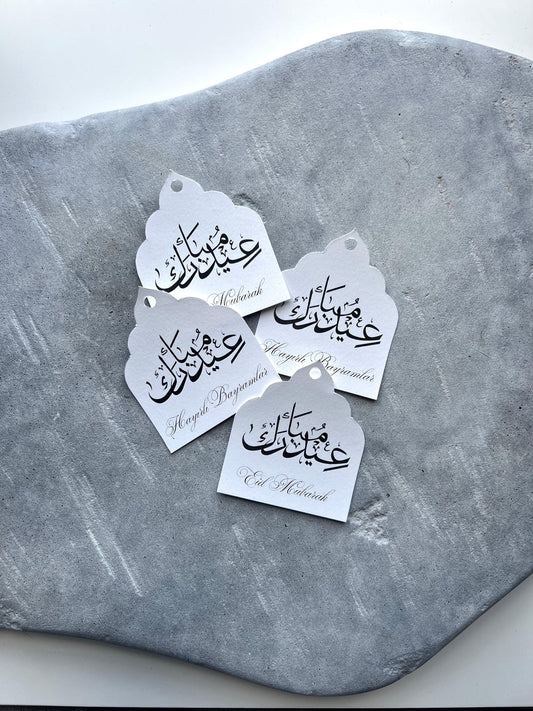 عيد مبارك
Mubarak
عيد مبارك
Hayırlı Bayramlar
عيد مبارك
Hayırlı Bayramlar
عيد مبارك
Eid Mubarak